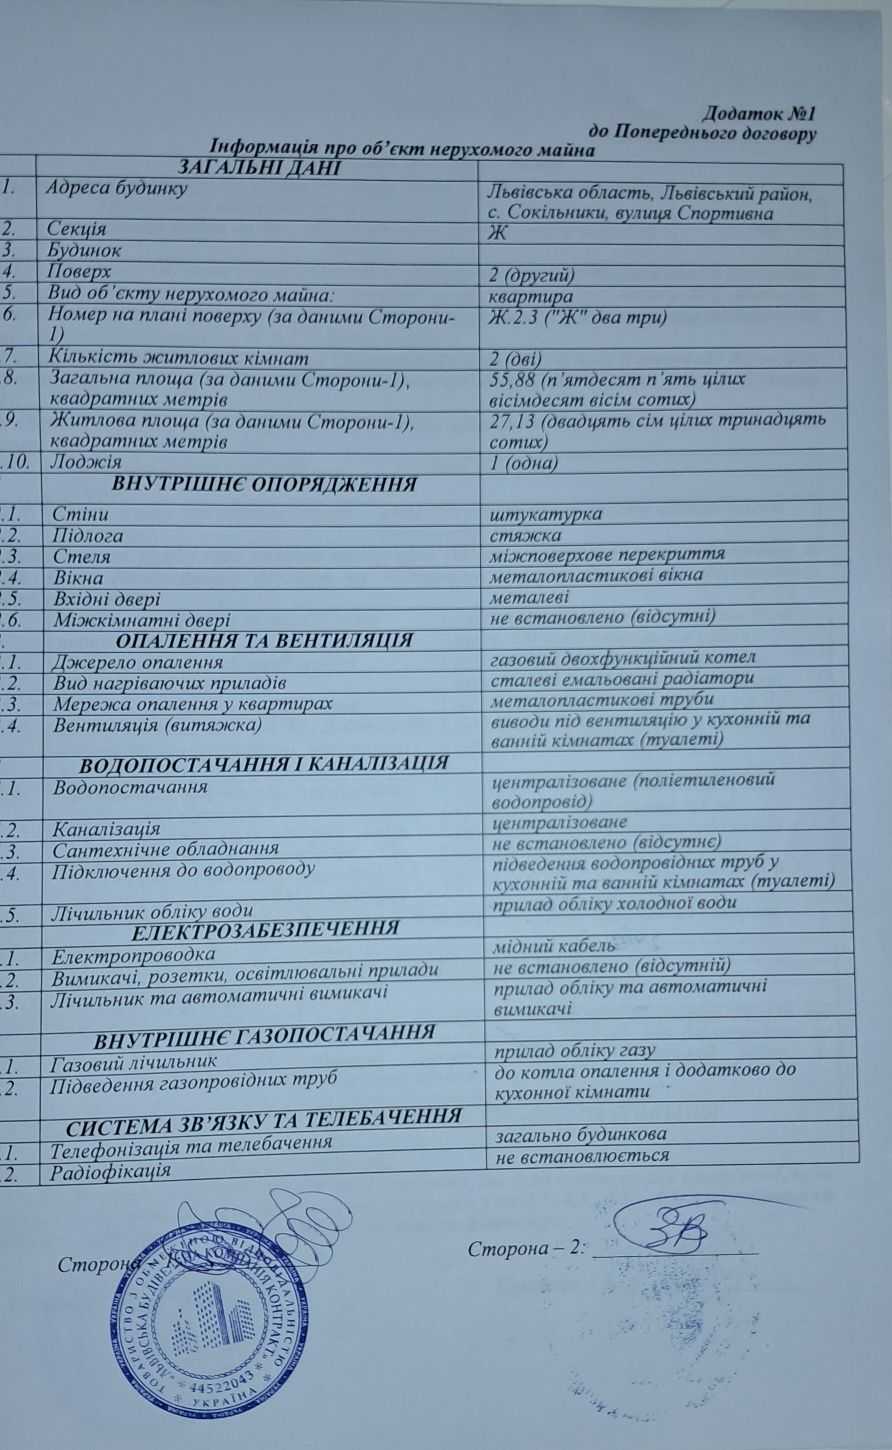 Додаток №1
до Попереднього договору
Інформація про об’єкт нерухомого майна
ЗАГАЛЬНІ ДАНІ
1. Адреса будинку Львівська область, Львівський район,
с. Сокільники, вулиця Спортивна
2. Секція Ж
3. Будинок
4. Поверх 2 (другий)
5. Вид об’єкту нерухомого майна: квартира
6. Номер на плані поверху (за даними Сторони- Ж.2.3 ("Ж" два три)
1)
7. Кількість житлових кімнат 2 (дві)
8. Загальна площа (за даними Сторони-1), 55,88 (п’ятдесят п’ять цілих
квадратних метрів вісімдесят вісім сотих)
9. Житлова площа (за даними Сторони-1), 27,13 (двадцять сім цілих тринадцять
квадратних метрів сотих)
.10. Лоджія 1 (одна)
ВНУТРІШНЄ ОПОРЯДЖЕННЯ
.1. Стіни штукатурка
.2. Підлога стяжка
.3. Стеля міжповерхове перекриття
.4. Вікна металопластикові вікна
.5. Вхідні двері металеві
.6. Міжкімнатні двері не встановлено (відсутні)
. ОПАЛЕННЯ ТА ВЕНТИЛЯЦІЯ
.1. Джерело опалення газовий двохфункційний котел
.2. Вид нагріваючих приладів сталеві емальовані радіатори
.3. Мережа опалення у квартирах металопластикові труби
.4. Вентиляція (витяжка) виводи під вентиляцію у кухонній та
ванній кімнатах (туалеті)
ВОДОПОСТАЧАННЯ І КАНАЛІЗАЦІЯ
.1. Водопостачання централізоване (поліетиленовий
водопровід)
.2. Каналізація централізоване
.3. Сантехнічне обладнання не встановлено (відсутнє)
.4. Підключення до водопроводу підведення водопровідних труб у
кухонній та ванній кімнатах (туалеті)
.5. Лічильник обліку води прилад обліку холодної води
ЕЛЕКТРОЗАБЕЗПЕЧЕННЯ
.1. Електропроводка мідний кабель
.2. Вимикачі, розетки, освітлювальні прилади не встановлено (відсутній)
.3. Лічильник та автоматичні вимикачі прилад обліку та автоматичні
вимикачі
ВНУТРІШНЄ ГАЗОПОСТАЧАННЯ
.1. Газовий лічильник прилад обліку газу
.2. Підведення газопровідних труб до котла опалення і додатково до
кухонної кімнати
СИСТЕМА ЗВ’ЯЗКУ ТА ТЕЛЕБАЧЕННЯ
.1. Телефонізація та телебачення загально будинкова
.2. Радіофікація не встановлюється
Сторона Сторона – 2:
ТОВАРИСТВО З ОБМЕЖЕНОЮ ВІДПОВІДАЛЬНІСТЮ
44522043
УКРАЇНА